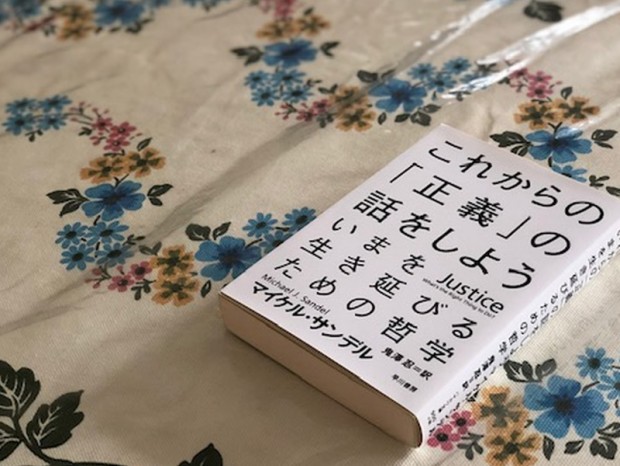 これからの
「正義」の
話をしよう
いまを
生き延びる
ための哲学
Justice
What's the Right Thing to Do?
Michael J. Sandel
マイケル・サンデル
鬼澤 忍=訳
早川書房